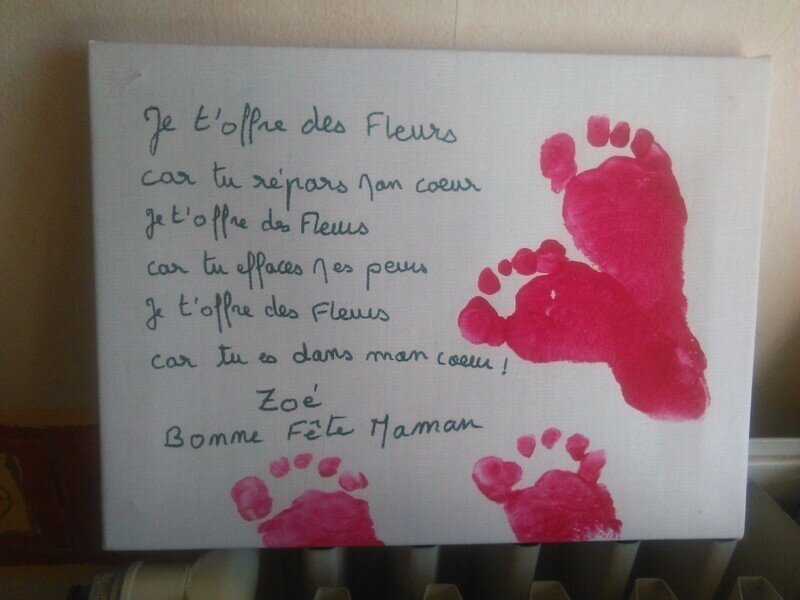 Je t'offre des Fleurs
car tu répars mon coeur
Je t'offre des Fleurs
car tu effaces mes peurs
Je t'offre des Fleurs
car tu es dans mon coeur !
Zoé
Bonne Fête Maman